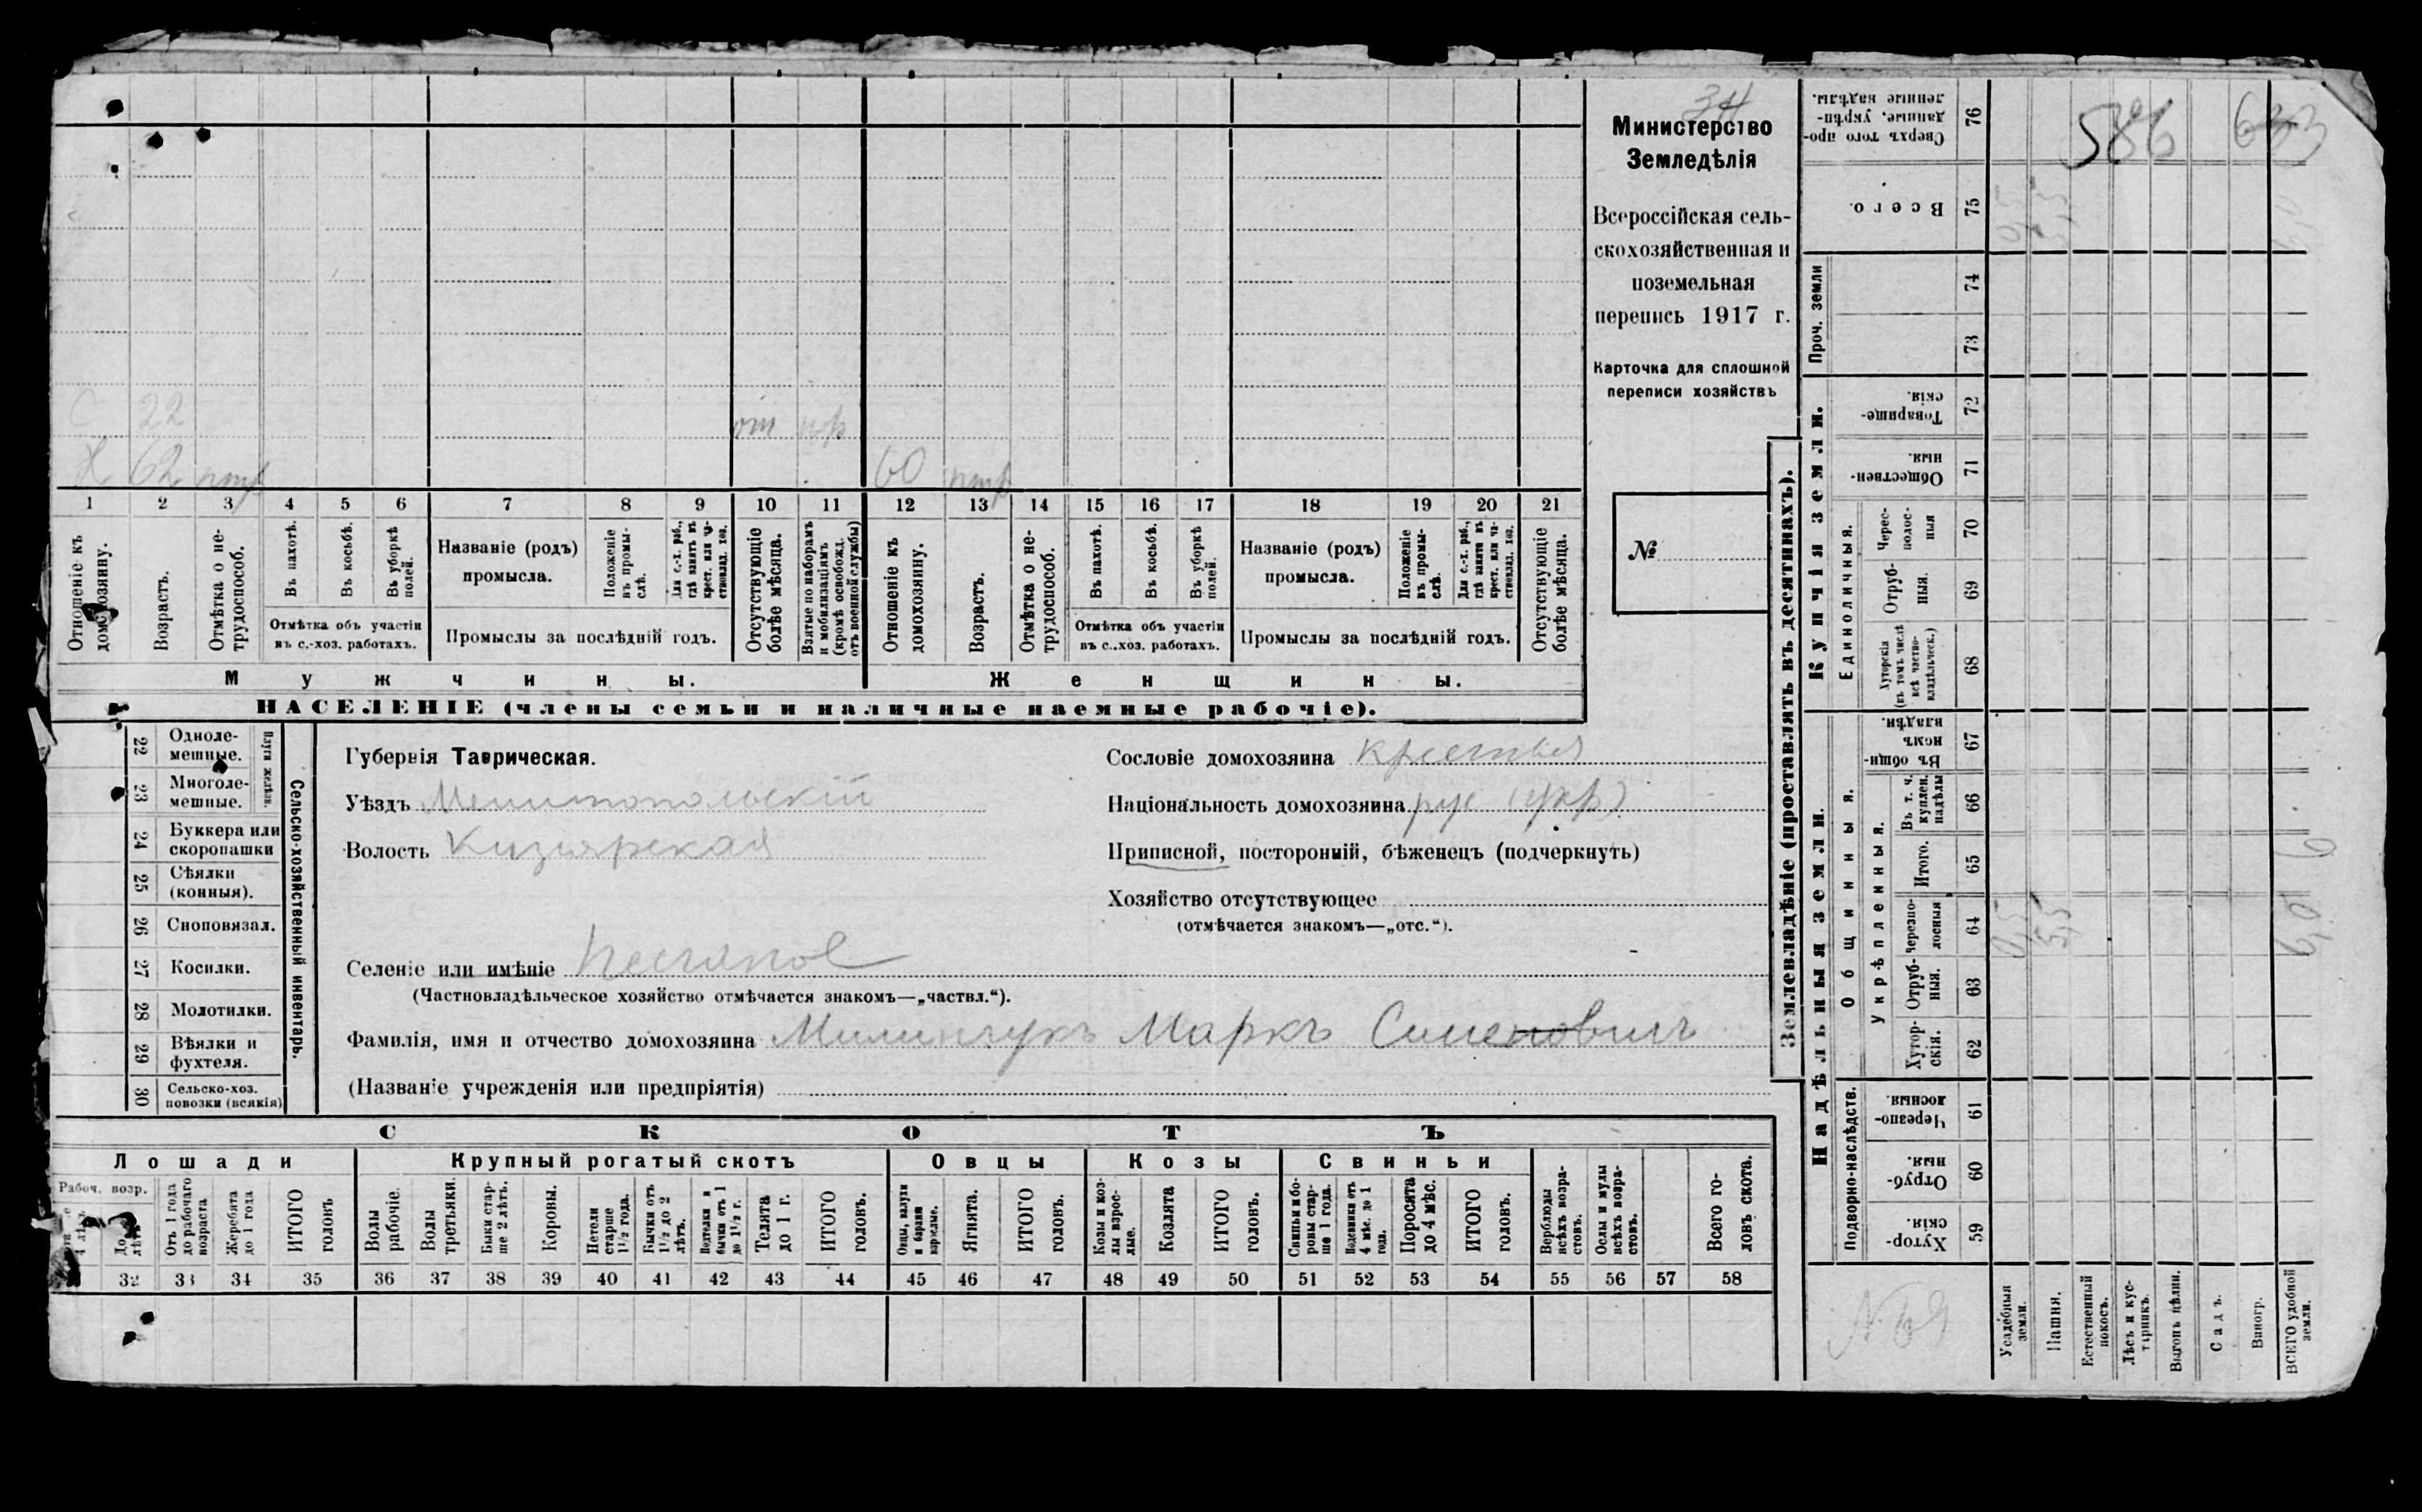 34
Министерство
Земледѣлія
Всероссійская сель-
скохозяйственная и
поземельная
перепись 1917 г.
Карточка для сплошной
переписи хозяйствъ
№
С 22
Х 62
60
1 2 3 4 5 6 7 8 9 10 11 12 13 14 15 16 17 18 19 20 21
Отношеніе къ домохозяину.
Возрастъ.
Отмѣтка о не-трудоспособ.
Въ пахотѣ.
Въ косьбѣ.
Въ уборкѣ полей.
Отмѣтка объ участіи
въ с.-хоз. работахъ.
Названіе (родъ)
промысла.
Положеніе въ промы-слѣ.
Для с.-х. раб., гдѣ занятъ въ крест. или ча-стновлад. хоз.
Промыслы за послѣдній годъ.
Отсутствующіе болѣе мѣсяца.
Взятые по наборамъ и мобилизаціямъ (кромѣ освобожд. отъ военной службы)
Отношеніе къ домохозяину.
Возрастъ.
Отмѣтка о не-трудоспособ.
Въ пахотѣ.
Въ косьбѣ.
Въ уборкѣ полей.
Отмѣтка объ участіи
въ с.-хоз. работахъ.
Названіе (родъ)
промысла.
Положеніе въ промы-слѣ.
Для с.-х. раб., гдѣ занята въ крест. или ча-стновлад. хоз.
Промыслы за послѣдній годъ.
Отсутствующіе болѣе мѣсяца.
Мужчины.
Женщины.
НАСЕЛЕНІЕ (члены семьи и наличные наемные рабочіе).
22 Одноле-мешные.
23 Многоле-мешные.
Плуги желѣзн.
24 Буккера или скоропашки
25 Сѣялки (конныя).
26 Сноповязал.
27 Косилки.
28 Молотилки.
29 Вѣялки и фухтеля.
30 Сельско-хоз. повозки (всякія)
Сельско-хозяйственный инвентарь.
Губернія Таврическая.
Уѣздъ Мелитопольскій
Волость Кизіярская
Селеніе или имѣніе
(Частновладѣльческое хозяйство отмѣчается знакомъ—„частвл.“).
Фамилія, имя и отчество домохозяина Милинчукъ Маркъ Семеновичъ
(Названіе учрежденія или предпріятія)
Сословіе домохозяина
Національность домохозяина рус (укр)
Приписной, посторонній, бѣженецъ (подчеркнуть)
Хозяйство отсутствующее
(отмѣчается знакомъ—„отс.“).
СКОТЪ
Лошади
Крупный рогатый скотъ
Овцы
Козы
Свиньи
Рабоч. возр.
Отъ 1 года до рабочаго возраста
Жеребята до 1 года
ИТОГО головъ
Волы рабочіе.
Волы третьяки.
Быки стар-ше 2 лѣтъ.
Коровы.
Нетели старше 1½ года.
Бычки отъ 1½ до 2 лѣтъ.
Подтелки и бычки отъ 1 до 1½ г.
Телята до 1 г.
ИТОГО головъ.
Овцы, валухи и бараны взрослые.
Ягнята.
ИТОГО головъ.
Козы и коз-лы взрос-лые.
Козлята
ИТОГО головъ.
Свиньи и бо-ровы стар-ше 1 года.
Подсвинки отъ 4 мѣс. до 1 года.
Поросята до 4 мѣс.
ИТОГО головъ.
Верблюды всѣхъ возра-стовъ.
Ослы и мулы всѣхъ возра-стовъ.
Всего го-ловъ скота.
32 33 34 35 36 37 38 39 40 41 42 43 44 45 46 47 48 49 50 51 52 53 54 55 56 57 58
Землевладѣніе (проставлять въ десятинахъ).
586 633
Сверхъ того про-данные, укрѣп-ленные надѣлы. 76
Всего. 75
Проч. земли
74
73
Купчія земли.
Товарище-скія. 72
Обществен-ныя. 71
Единоличныя.
Черес-полос-ныя 70
Отруб-ныя. 69
Хуторскія (въ томъ числѣ всѣ частно-владѣльческ.) 68
Надѣльныя земли.
Общинныя.
Въ общи-номъ владѣн. 67
Укрѣпленныя.
Въ т. ч. куплен. надѣлы 66
Итого. 65
Черезпо-лосныя 64
Отруб-ныя. 63
Хутор-скія. 62
Подворно-наслѣдств.
Черезпо-лосныя. 61
Отруб-ныя. 60
Хутор-скія. 59
Усадебныя земли.
Пашня.
Естественный покосъ.
Лѣсъ и кус-тарникъ.
Выгонъ цѣлин.
Садъ.
Виногр.
ВСЕГО удобной земли.